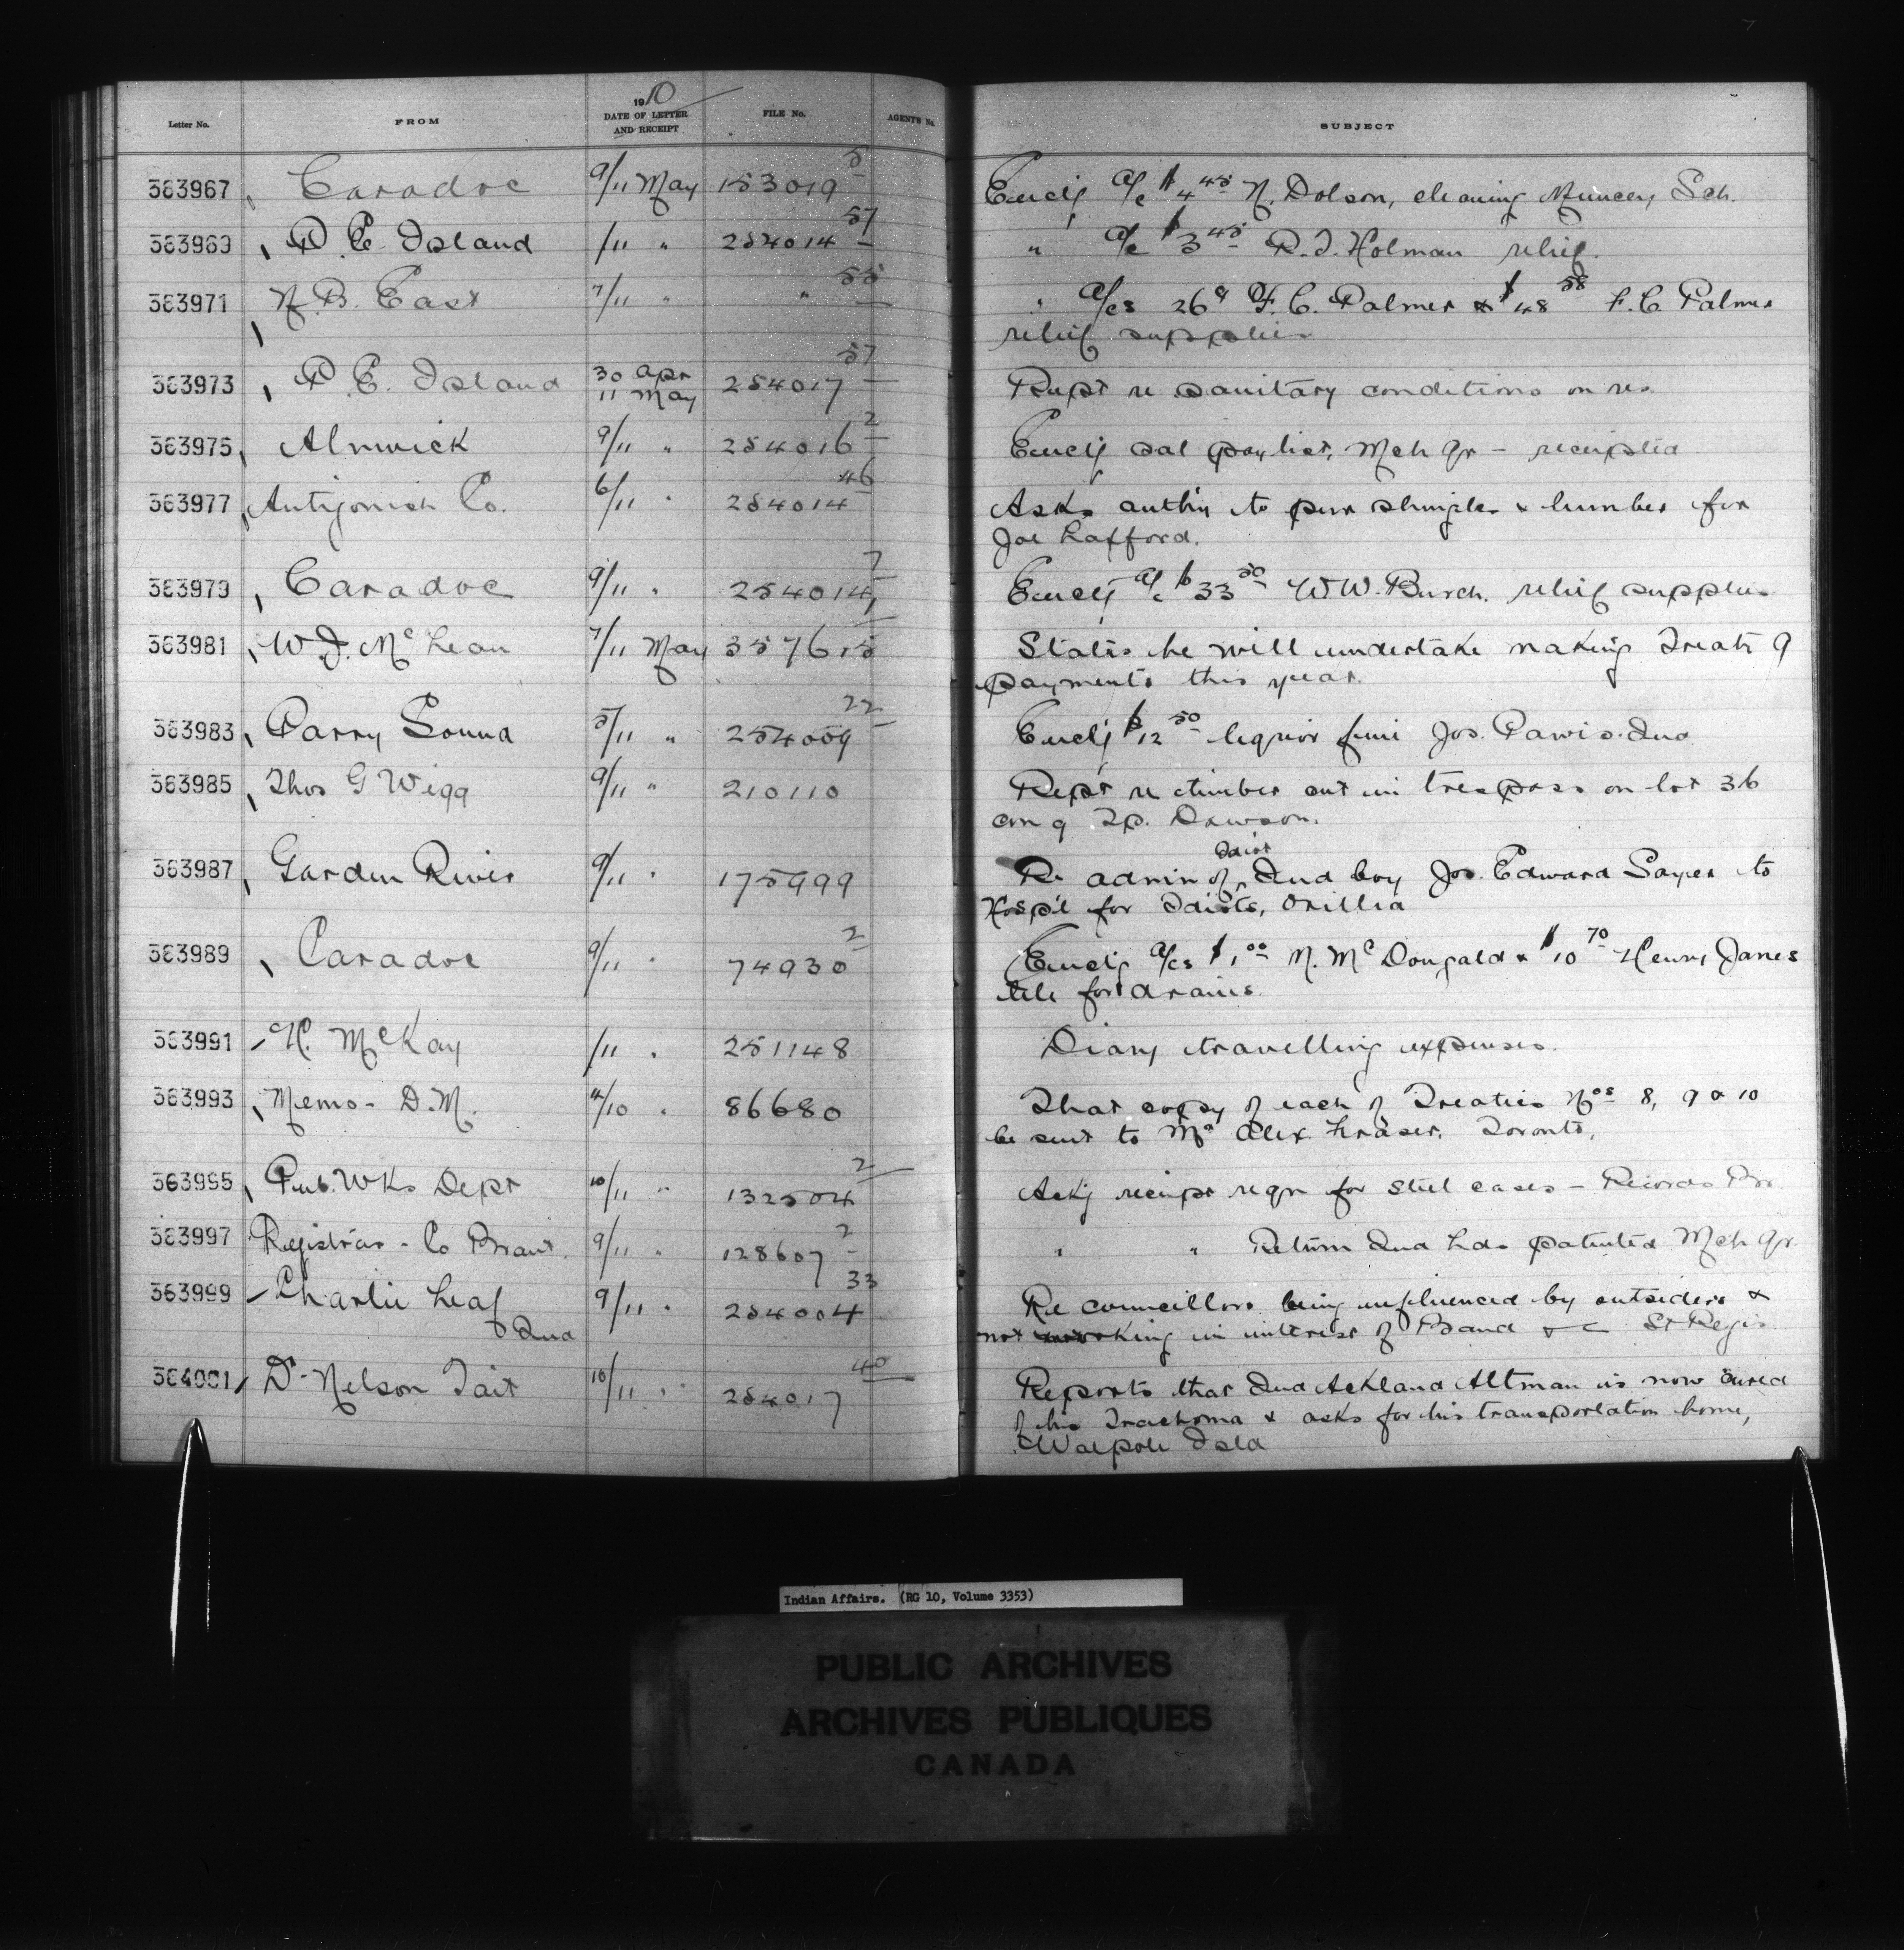 Letter No. FROM 1910 DATE OF LETTER AND RECEIPT FILE No. AGENTS No. SUBJECT
363967 Caradoc 9/11 May 153019 5 Encl'g a/c $4.45 N. Dolson, cleaning Muncey Sch.
363969 P. E. Island /11 " 254014 57 " a/c $3.45 R.T. Holman relief.
363971 N. B. East 7/11 " " 55 " a/cs 26 F. C. Palmer & $48.58 F. C. Palmer
relief supplies
363973 P. E. Island 30 Apr 11 May 254017 57 Rept re sanitary conditions on res
363975 Alnwick 9/11 " 254016 2 Encl'g sal pay list, Mch qr - receipted
363977 Antigonish Co. 6/11 " 254014 46 Asks auth'y to pur shingles & lumber for
Joe Lafford.
363979 Caradoc 9/11 " 254014 7 Encl'g a/c $33.50 W W. Burch. relief supplies
363981 W. J. McLean 7/11 May 357615 States he will undertake making Treaty 9
payments this year.
363983 Parry Sound 5/11 " 254009 22 Encl'g $12.50 liquor fine Jos. Pawis. Ind
363985 Thos G Wigg 9/11 " 210110 Rept re timber cut in trespass on lot 36
con 9 Tp. Dawson.
363987 Garden River 9/11 " 175999 Re admin of Idiot Ind boy Jos. Edward Sayer to
Hosp'l for Idiots, Orillia
363989 Caradoc 9/11 " 74930 2 Encl'g a/cs $1.00 N. McDougald & $10.70 Henry Janes
tile for drains.
363991 H. McKay /11 " 251148 Diary travelling expenses.
363993 Memo - D.M. 4/10 " 86680 That copy of each of Treaties Nos 8, 9 & 10
be sent to Mr Alex. Fraser. Toronto.
363995 Pub. Wks Dept 10/11 " 132504 2 Ask'g receipt reqn for steel cases - Records Br
363997 Registrar - Co Brant. 9/11 " 128607 2 " " Return Ind Lds patented Mch qr.
363999 Charlie Leaf 9/11 " 254004 33 Re councillors being influenced by outsiders &
Ind not working in interest of Band &c St Regis
364001 Dr Nelson Tait 10/11 " 254017 40 Reports that Ind Ackland Altman is now cured
of his Trachoma & asks for his transportation home,
Walpole Isld
Indian Affairs. (RG 10, Volume 3353)
PUBLIC ARCHIVES
ARCHIVES PUBLIQUES
CANADA